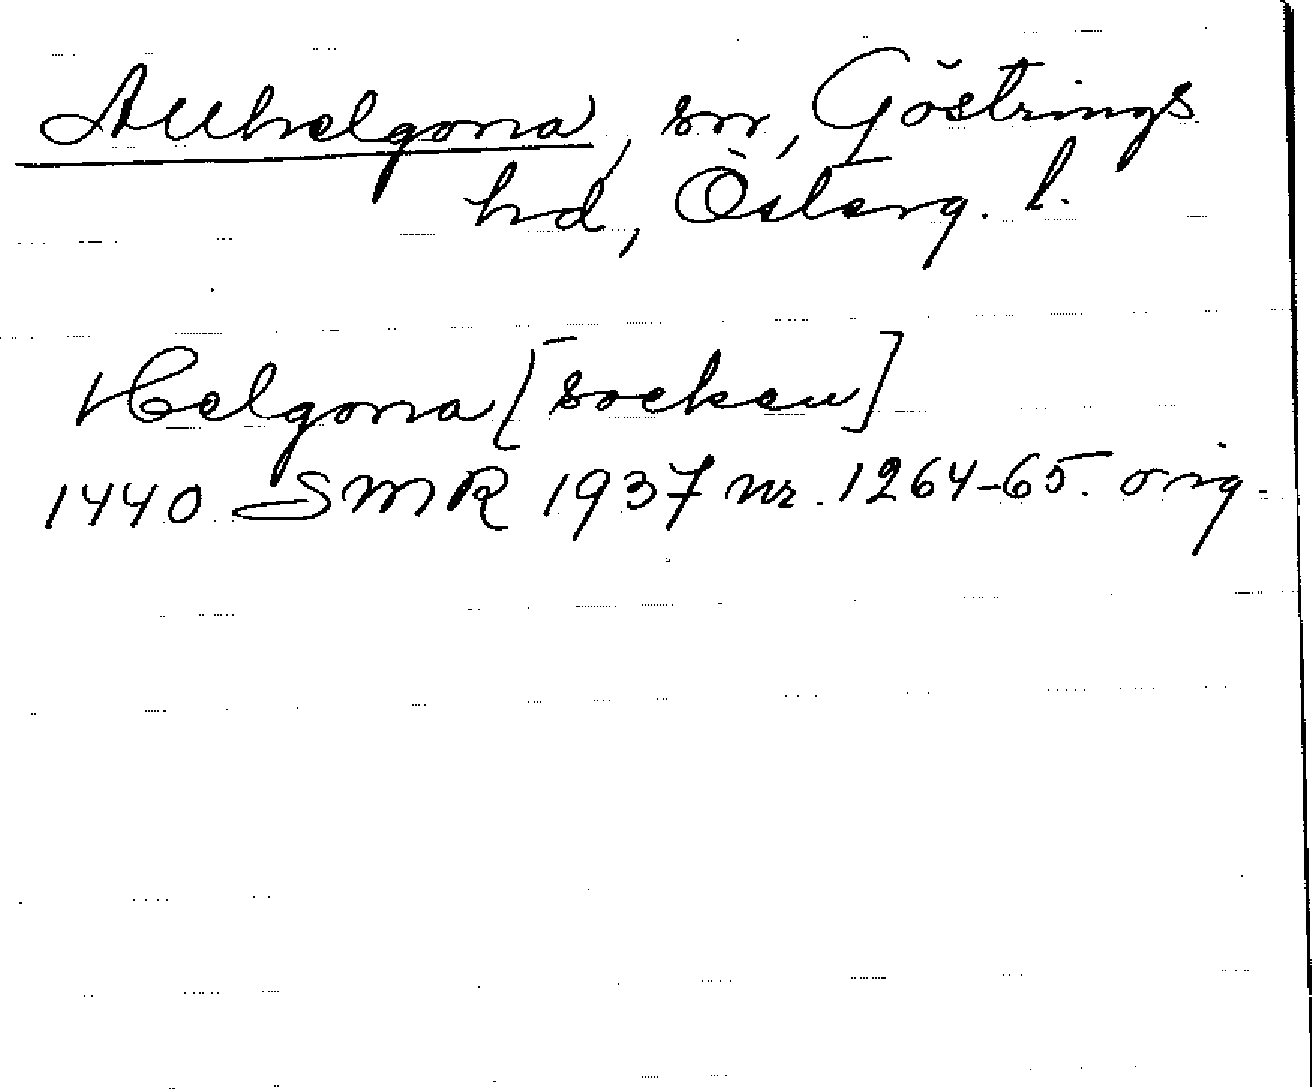 Allhelgona, sn, Göstrings
hd, Österg. l.
Helgona [socken]
1440 SMR 1937 nr. 1264-65. orig.